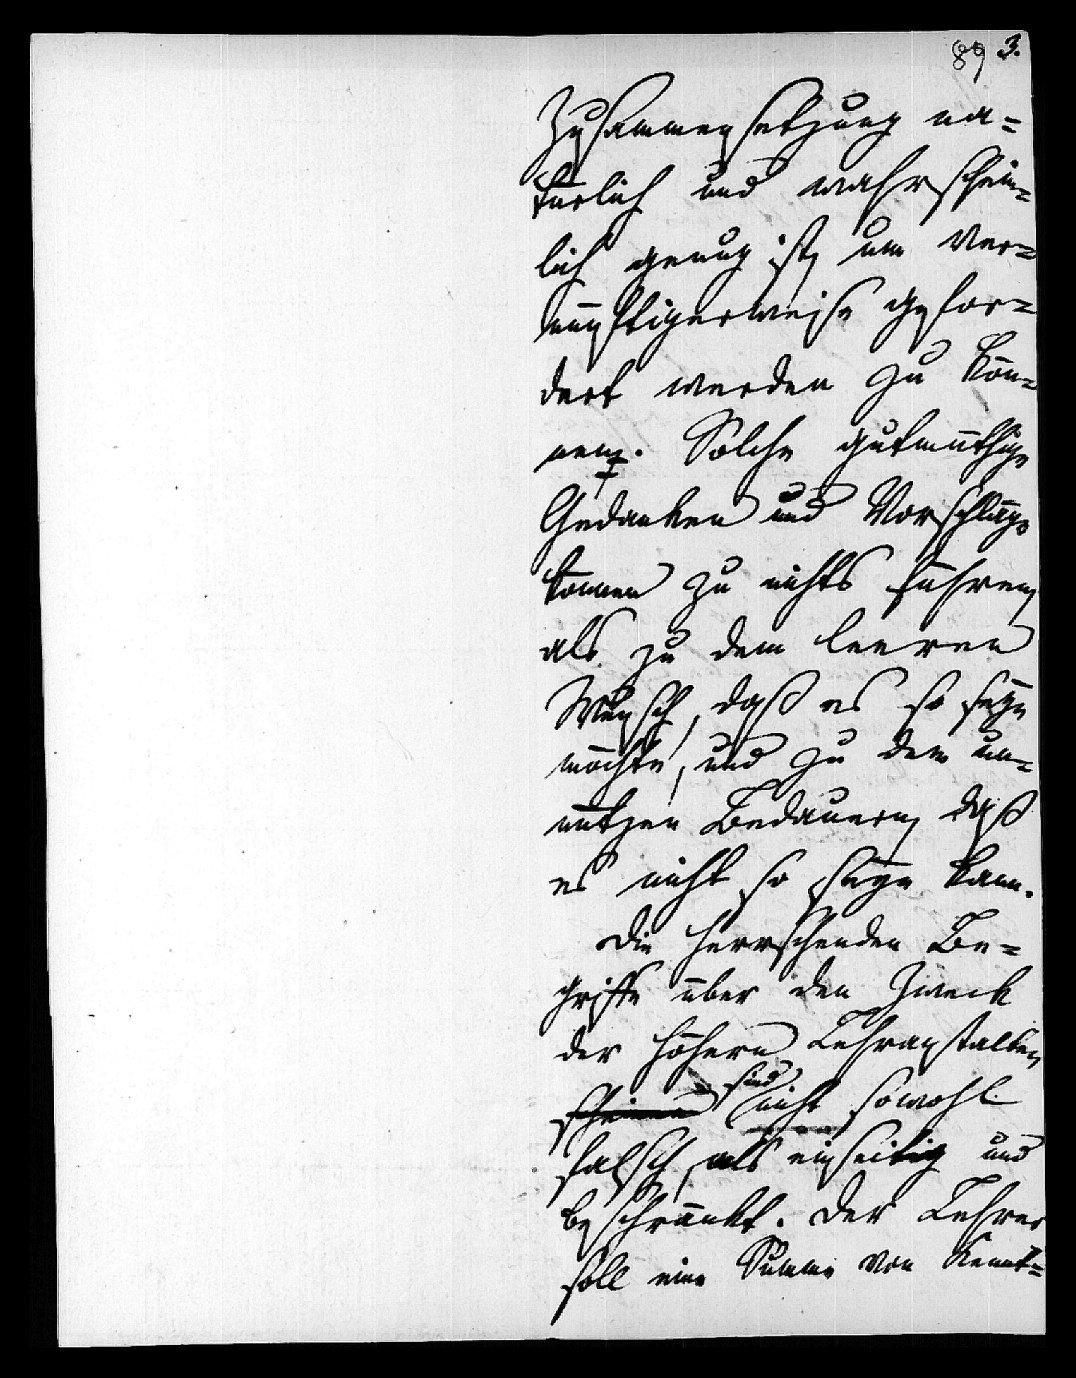 89 3.
Zusammensetzung na=
türlich und wahrschein=
lich genug ist, um ver=
nünftigerweise gefor=
dert werden zu kön=
nen. Solche gutmüthige
Gedanken und Vorschläge
können zu nichts führen,
als zu dem leeren
Wunsch, daß es so seyn
möchte, und zu dem un=
nützen Bedauern, daß
es nicht so seyn kann.
Die herrschenden Be=
griffe über den Zweck
der höhern Lehranstalten
scheinen sind nicht sowohl
falsch, als einseitig und
beschränkt. Der Lehrer
soll eine Summe von Kennt=